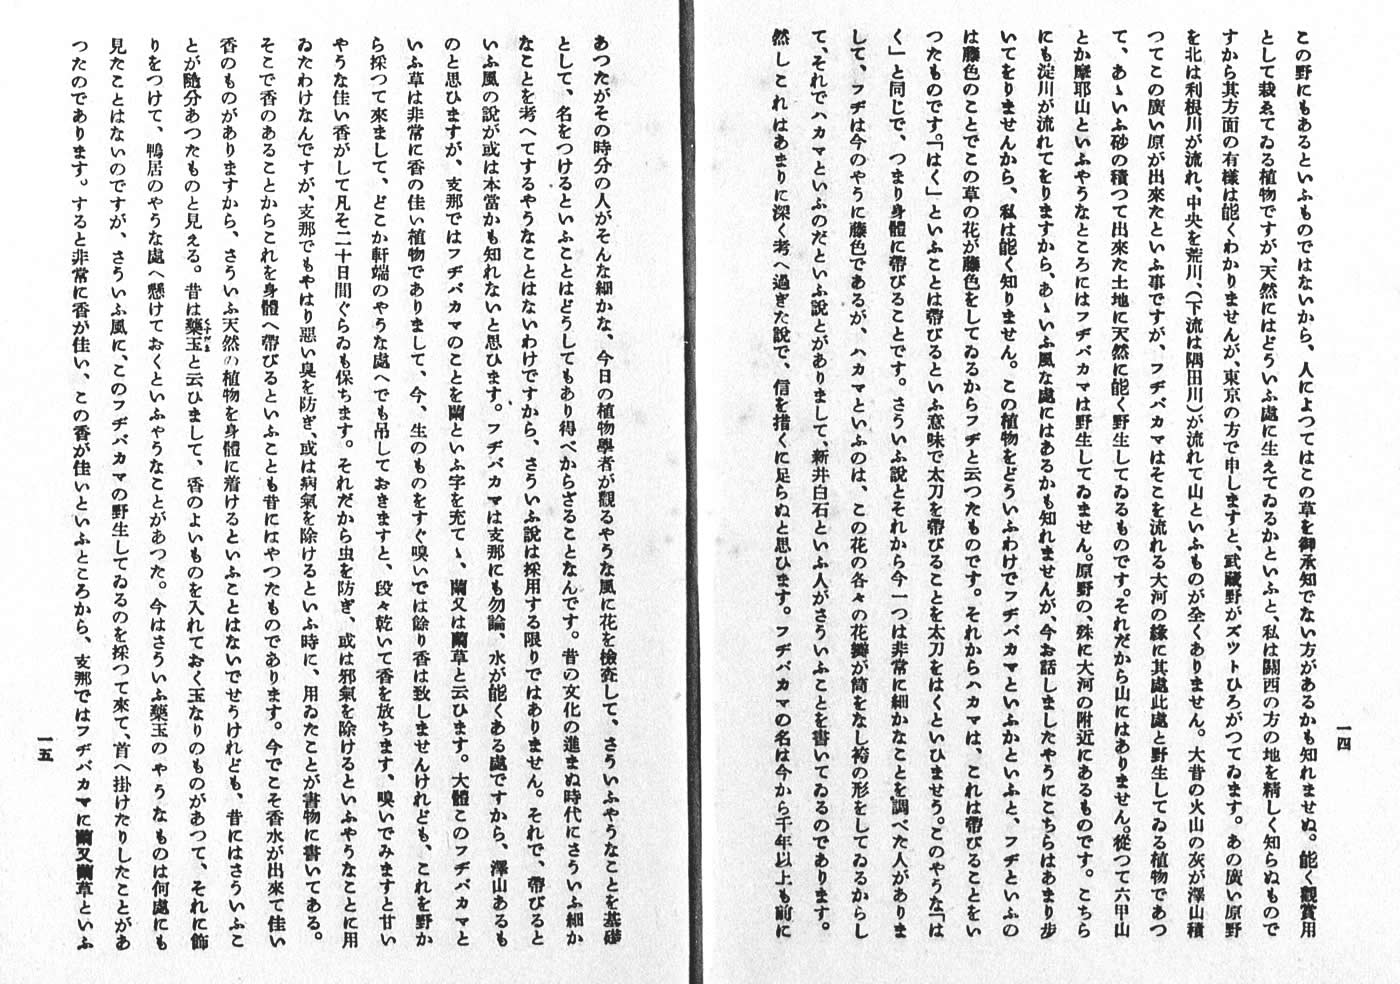 この野にもあるといふものではないから、人によつてはこの草を御承知でない方があるかも知れませぬ。能く觀賞用
として栽ゑてゐる植物ですが、天然にはどういふ處に生えてゐるかといふと、私は關西の方の地を精しく知らぬもので
すから其方面の有樣は能くわかりませんが、東京の方で申しますと、武藏野がズツトひろがつてゐます。あの廣い原野
を北は利根川が流れ、中央を荒川、(下流は隅田川)が流れて山といふものが全くありません。大昔の火山の灰が澤山積
つてこの廣い原が出來たといふ事ですが、フヂバカマはそこを流れる大河の緣に其處此處と野生してゐる植物であつ
て、あゝいふ砂の積つて出來た土地に天然に能く野生してゐるものです。それだから山にはありません。從つて六甲山
とか摩耶山といふやうなところにはフヂバカマは野生してゐません。原野の、殊に大河の附近にあるものです。こちら
にも淀川が流れてをりますから、あゝいふ風な處にはあるかも知れませんが、今お話しましたやうにこちらはあまり步
いてをりませんから、私は能く知りません。この植物をどういふわけでフヂバカマといふかといふと、フヂといふの
は藤色のことでこの草の花が藤色をしてゐるからフヂと云つたものです。それからハカマは、これは帶びることをい
つたものです。「はく」といふことは帶びるといふ意味で太刀を帶びることを太刀をはくといひませう。このやうな「は
く」と同じで、つまり身體に帶びることです。さういふ說とそれから今一つは非常に細かなことを調べた人がありま
して、フヂは今のやうに藤色であるが、ハカマといふのは、この花の各々の花瓣が筒をなし袴の形をしてゐるからし
て、それでハカマといふのだといふ說とがありまして、新井白石といふ人がさういふことを書いてゐるのであります。
然しこれはあまりに深く考へ過ぎた說で、信を措くに足らぬと思ひます。フヂバカマの名は今から千年以上も前に
一四
あつたがその時分の人がそんな細かな、今日の植物學者が觀るやうな風に花を檢査して、さういふやうなことを基礎
として、名をつけるといふことはどうしてもあり得べからざることなんです。昔の文化の進まぬ時代にさういふ細か
なことを考へてするやうなことはないわけですから、さういふ說は採用する限りではありません。それで、帶びると
いふ風の說が或は本當かも知れないと思ひます。フヂバカマは支那にも勿論、水が能くある處ですから、澤山あるも
のと思ひますが、支那ではフヂバカマのことを蘭といふ字を充てゝ、蘭又は蘭草と云ひます。大體このフヂバカマと
いふ草は非常に香の佳い植物でありまして、今、生のものをすぐ嗅いでは餘り香は致しませんけれども、これを野か
ら採つて來まして、どこか軒端のやうな處へでも吊しておきますと、段々乾いて香を放ちます、嗅いでみますと甘い
やうな佳い香がして凡そ二十日間ぐらゐも保ちます。それだから虫を防ぎ、或は邪氣を除けるといふやうなことに用
ゐたわけなんですが、支那でもやはり惡い臭を防ぎ、或は病氣を除けるといふ時に、用ゐたことが書物に書いてある。
そこで香のあることからこれを身體へ帶びるといふことも昔にはやつたものであります。今でこそ香水が出來て佳い
香のものがありますから、さういふ天然の植物を身體に着けるといふことはないでせうけれども、昔にはさういふこ
とが隨分あつたものと見える。昔は藥玉と云ひまして、香のよいものを入れておく玉なりのものがあつて、それに飾
りをつけて、鴨居のやうな處へ懸けておくといふやうなことがあつた。今はさういふ藥玉のやうなものは何處にも
見たことはないのですが、さういふ風に、このフヂバカマの野生してゐるのを採つて來て、首へ掛けたりしたことがあ
つたのであります。すると非常に香が佳い、この香が佳いといふところから、支那ではフヂバカマに蘭又蘭草といふ
一五